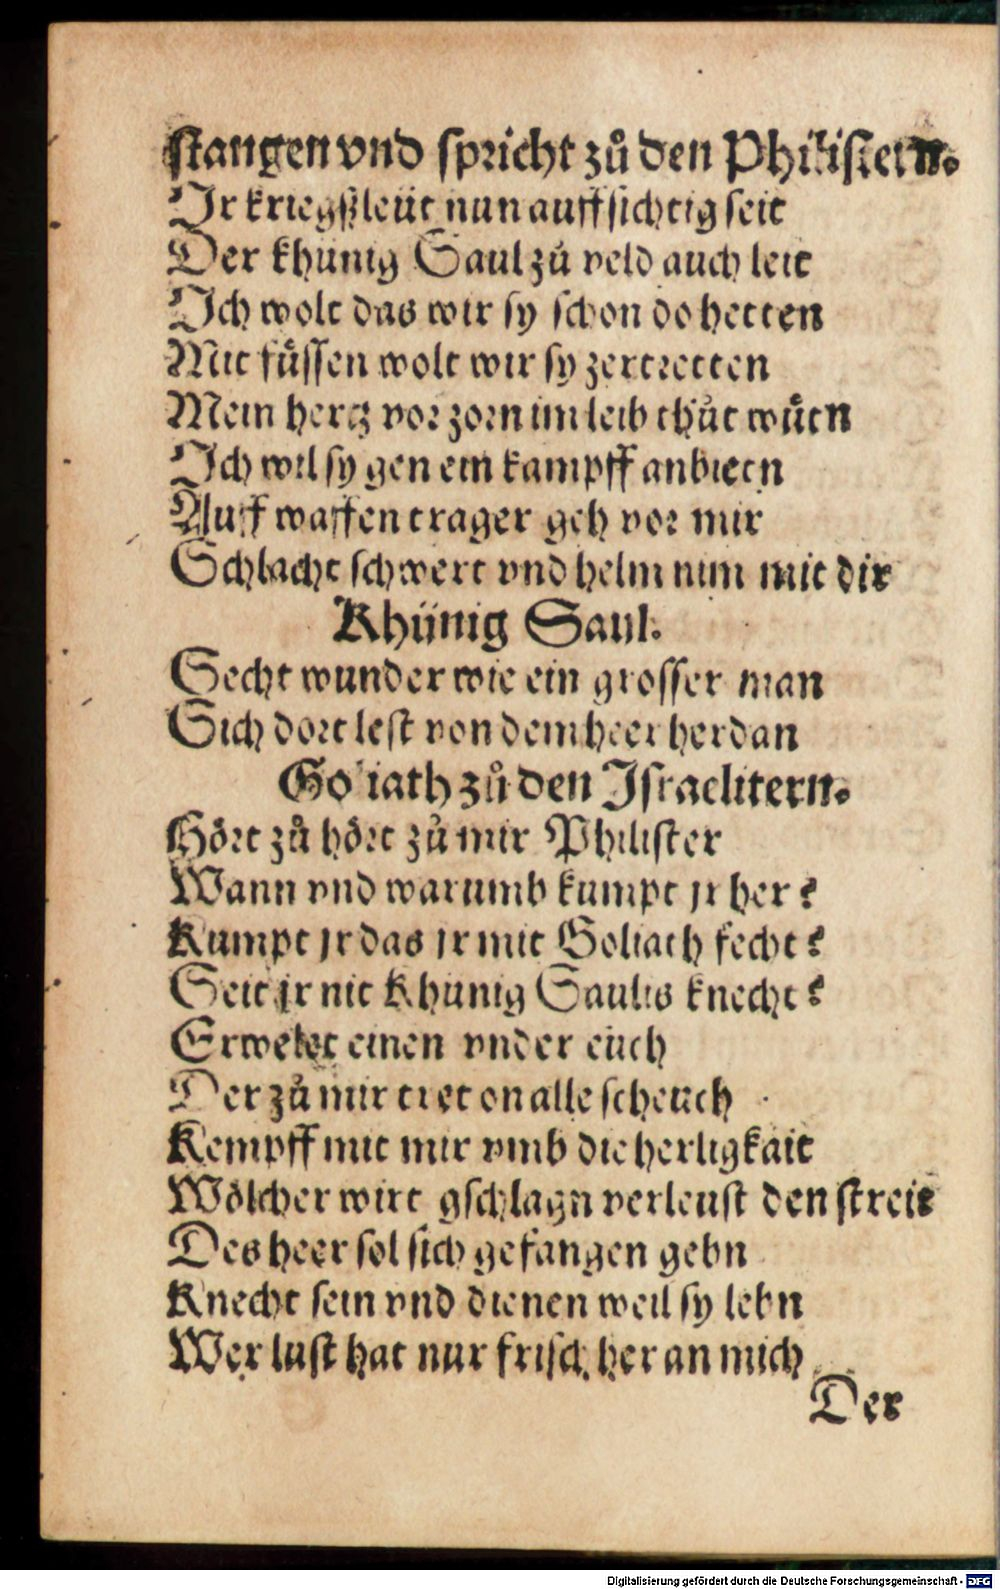 stangen vnd spricht zů den Philistern.
Ir kriegßleüt nun auffsichtig seit
Der khünig Saul zů veld auch leit
Ich wolt das wir sy schon do hetten
Mit füssen wolt wir sy zertretten
Mein hertz vor zorn im leib thůt wütn
Ich wil sy gen ein kampff anbietn
Auff waffentrager geh vor mir
Schlacht schwert vnd helm nim mit dir
Khünig Saul.
Secht wunder wie ein grosser man
Sich dort lest von dem heer herdan
Goliath zů den Israelitern.
Hört zů hört zů mir Philister
Wann vnd warumb kumpt jr her?
Kumpt jr das jr mit Goliath fecht?
Seit jr nit Khünig Saulis knecht?
Erwelet einen vnder euch
Der zů mir tret on alle scheuch
Kempff mit mir vmb die herligkait
Wölcher wirt gschlagn verleust den streit
Des heer sol sich gefangen gebn
Knecht sein vnd dienen weil sy lebn
Wer lust hat nur frisch her an mich
Der
Digitalisierung gefördert durch die Deutsche Forschungsgemeinschaft - DFG